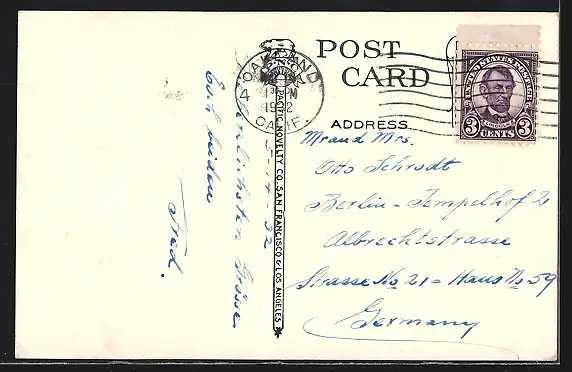 POST
CARD
ADDRESS
OAKLAND
CALIF.
4
1932
PM
UNITED STATES POSTAGE
3 CENTS 3
PACIFIC NOVELTY CO. SAN FRANCISCO & LOS ANGELES
5-14-32
herzlichsten Grüsse
Euch beiden
Fred.
Mr and Mrs.
Otto Schrodt
Berlin-Tempelhof 2
Albrechtstrasse
Strasse No 21 = Haus No 59
Germany